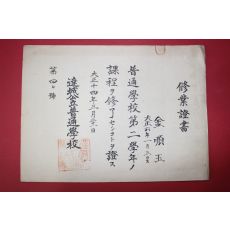 修業證書
金順玉
大正六年一月五日生
普通學校第二學年ノ
課程ヲ修了セシコトヲ證ス
大正十四年三月
達城公立普通學校
第四